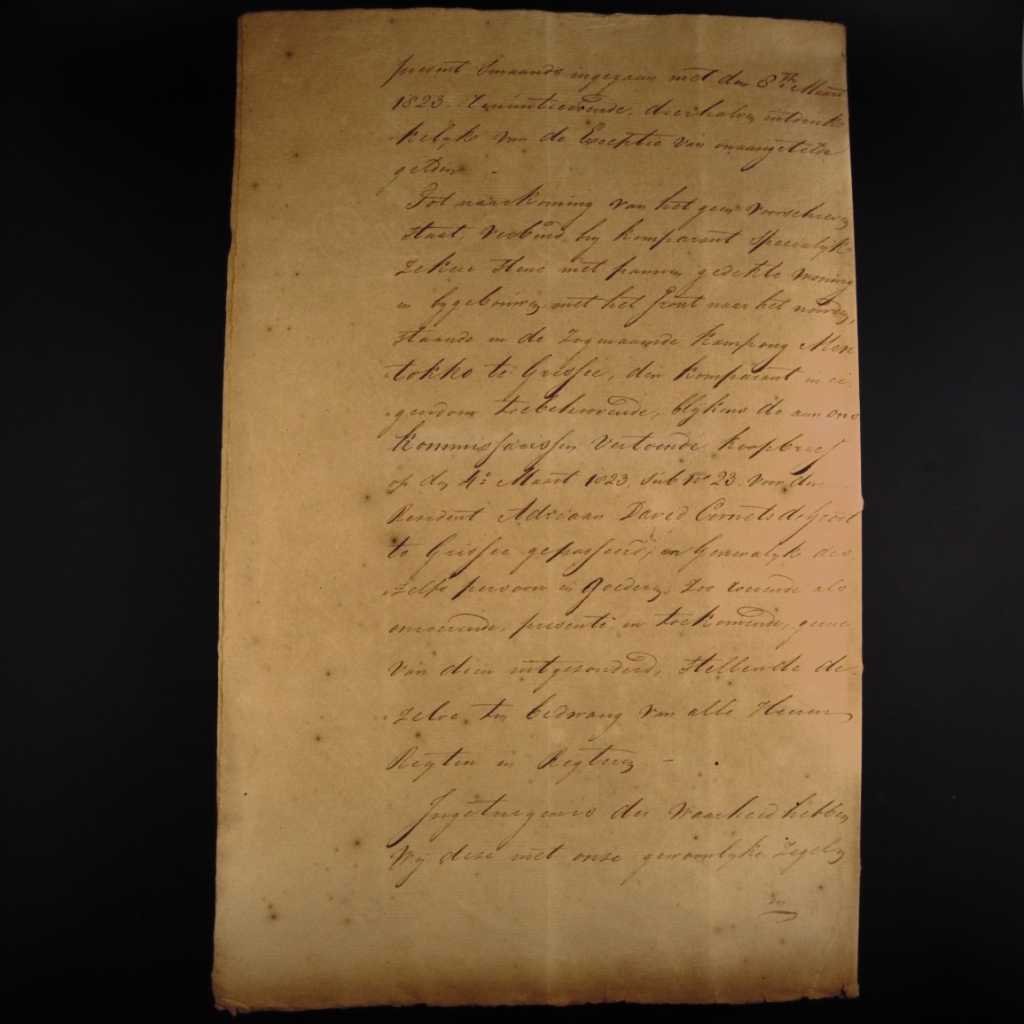 present Smaands ingegaan met den 8ste Maart
1823. Renuntieerende, derhalven uitdruk-
kelyk van de Exceptie van onaangetelde
gelden. -
Tot naarkoming van het geen voorschreven
staat, verbind, hy komparant specialyk
zekere steene met pannen gedekte woning
en bygebouwen, met het front naar het noorden,
staande in de zogenaamde kampong Men
tokko te Grissee, den komparant in ei-
gendom toebehoorende, blykens de aan ons
kommissarissen vertoonde koopbrief
op den 4e Maart 1823, sub No 23. voor den
Resident Adriaan David Cornets de Groot
te Grissee gepasseerd; en Generalyk des
zelfs persoon en goederen, zoo roerende als
onroerende, presente en toekomende, geene
van dien uitgezonderd, stellende de-
zelve ten bedwang van alle Heeren
Regten en Regteren -
In getuigenis der waarheid hebben
Wy deze met onze gewoonlyke Zegelen